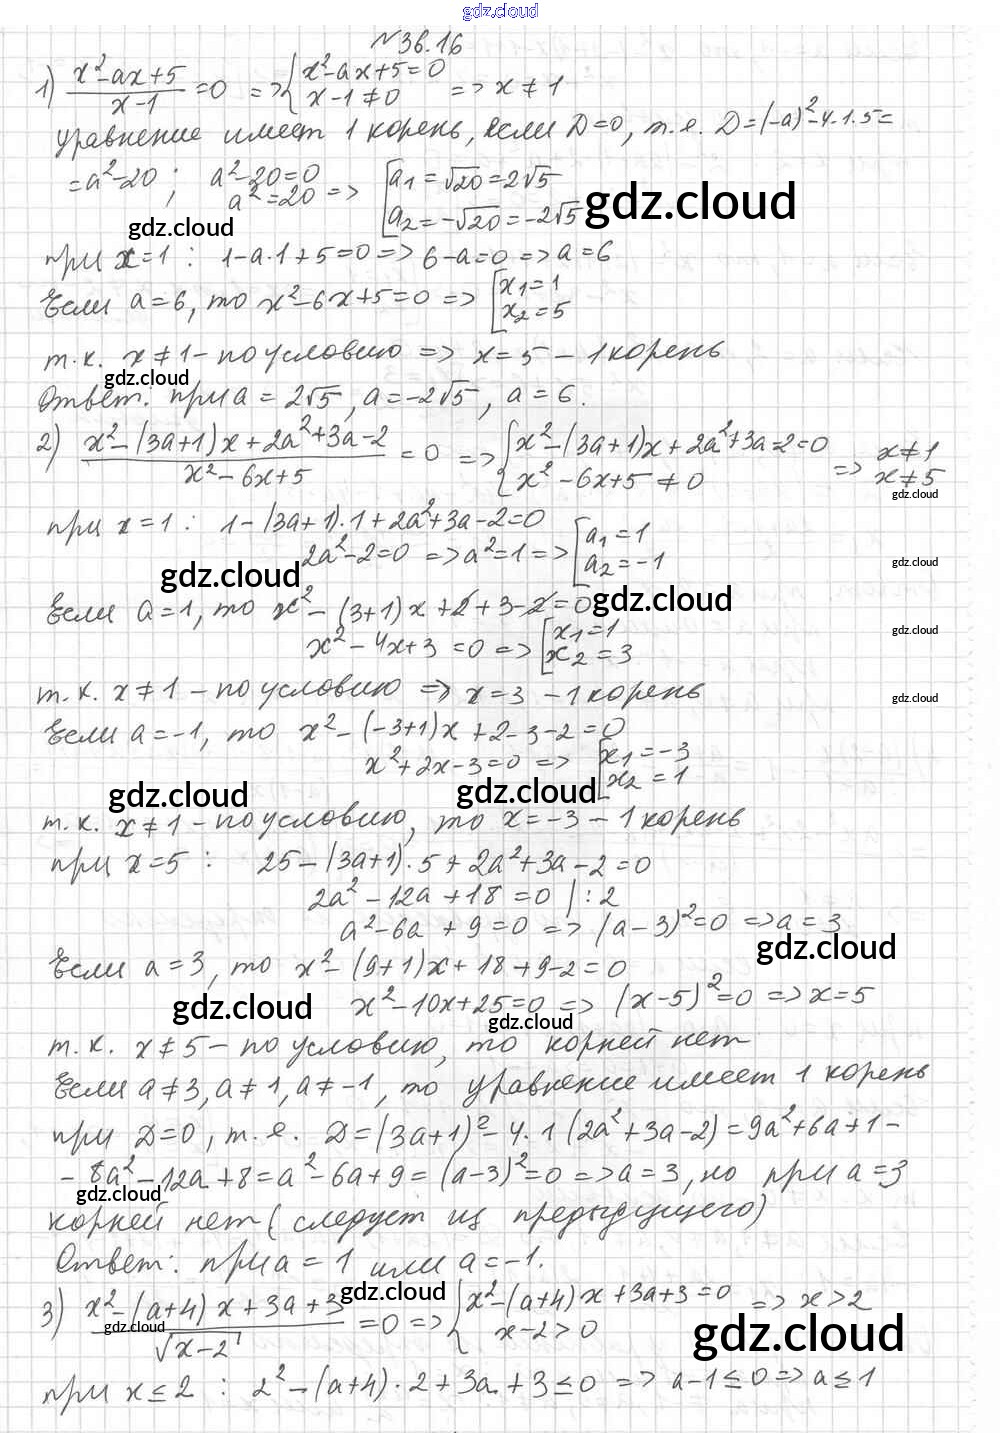 gdz.cloud
№36.16
1) (x²-ax+5)/(x-1) =0 => { x²-ax+5=0 ; x-1≠0 => x≠1
уравнение имеет 1 корень, если D=0, т.е. D=(-a)²-4·1·5=
=a²-20; a²-20=0
a²=20 => [ a₁=√20=2√5
a₂=-√20=-2√5
gdz.cloud
gdz.cloud
при x=1: 1-a·1+5=0 => 6-a=0 => a=6
Если a=6, то x²-6x+5=0 => [ x₁=1
x₂=5
т.к. x≠1 - по условию => x=5 - 1 корень
gdz.cloud
Ответ: при a=2√5, a=-2√5, a=6.
2) (x²-(3a+1)x+2a²+3a-2)/(x²-6x+5) =0 => { x²-(3a+1)x+2a²+3a-2=0 ; x²-6x+5≠0 => x≠1
x≠5
gdz.cloud
при x=1: 1-(3a+1)·1+2a²+3a-2=0
2a²-2=0 => a²=1 => [ a₁=1
a₂=-1
gdz.cloud
gdz.cloud
gdz.cloud
Если a=1, то x²-(3+1)x+2+3-2=0
gdz.cloud
x²-4x+3=0 => [ x₁=1
x₂=3
т.к. x≠1 - по условию => x=3 - 1 корень
gdz.cloud
Если a=-1, то x²-(-3+1)x+2-3-2=0
x²+2x-3=0 => [ x₁=-3
x₂=1
gdz.cloud
gdz.cloud
т.к. x≠1 - по условию, то x=-3 - 1 корень
при x=5: 25-(3a+1)·5+2a²+3a-2=0
2a²-12a+18=0 |:2
a²-6a+9=0 => (a-3)²=0 => a=3
gdz.cloud
Если a=3, то x²-(9+1)x+18+9-2=0
x²-10x+25=0 => (x-5)²=0 => x=5
gdz.cloud
gdz.cloud
т.к. x≠5 - по условию, то корней нет
Если a≠3, a≠1, a≠-1, то уравнение имеет 1 корень
при D=0, т.е. D=(3a+1)²-4·1(2a²+3a-2)=9a²+6a+1-
-8a²-12a+8=a²-6a+9=(a-3)²=0 => a=3, но при a=3
gdz.cloud
корней нет (следует из предыдущего)
Ответ: при a=1 или a=-1.
gdz.cloud
3) (x²-(a+4)x+3a+3)/√(x-2) =0 => { x²-(a+4)x+3a+3=0 ; x-2>0 => x>2
gdz.cloud
gdz.cloud
при x≤2: 2²-(a+4)·2+3a+3≤0 => a-1≤0 => a≤1